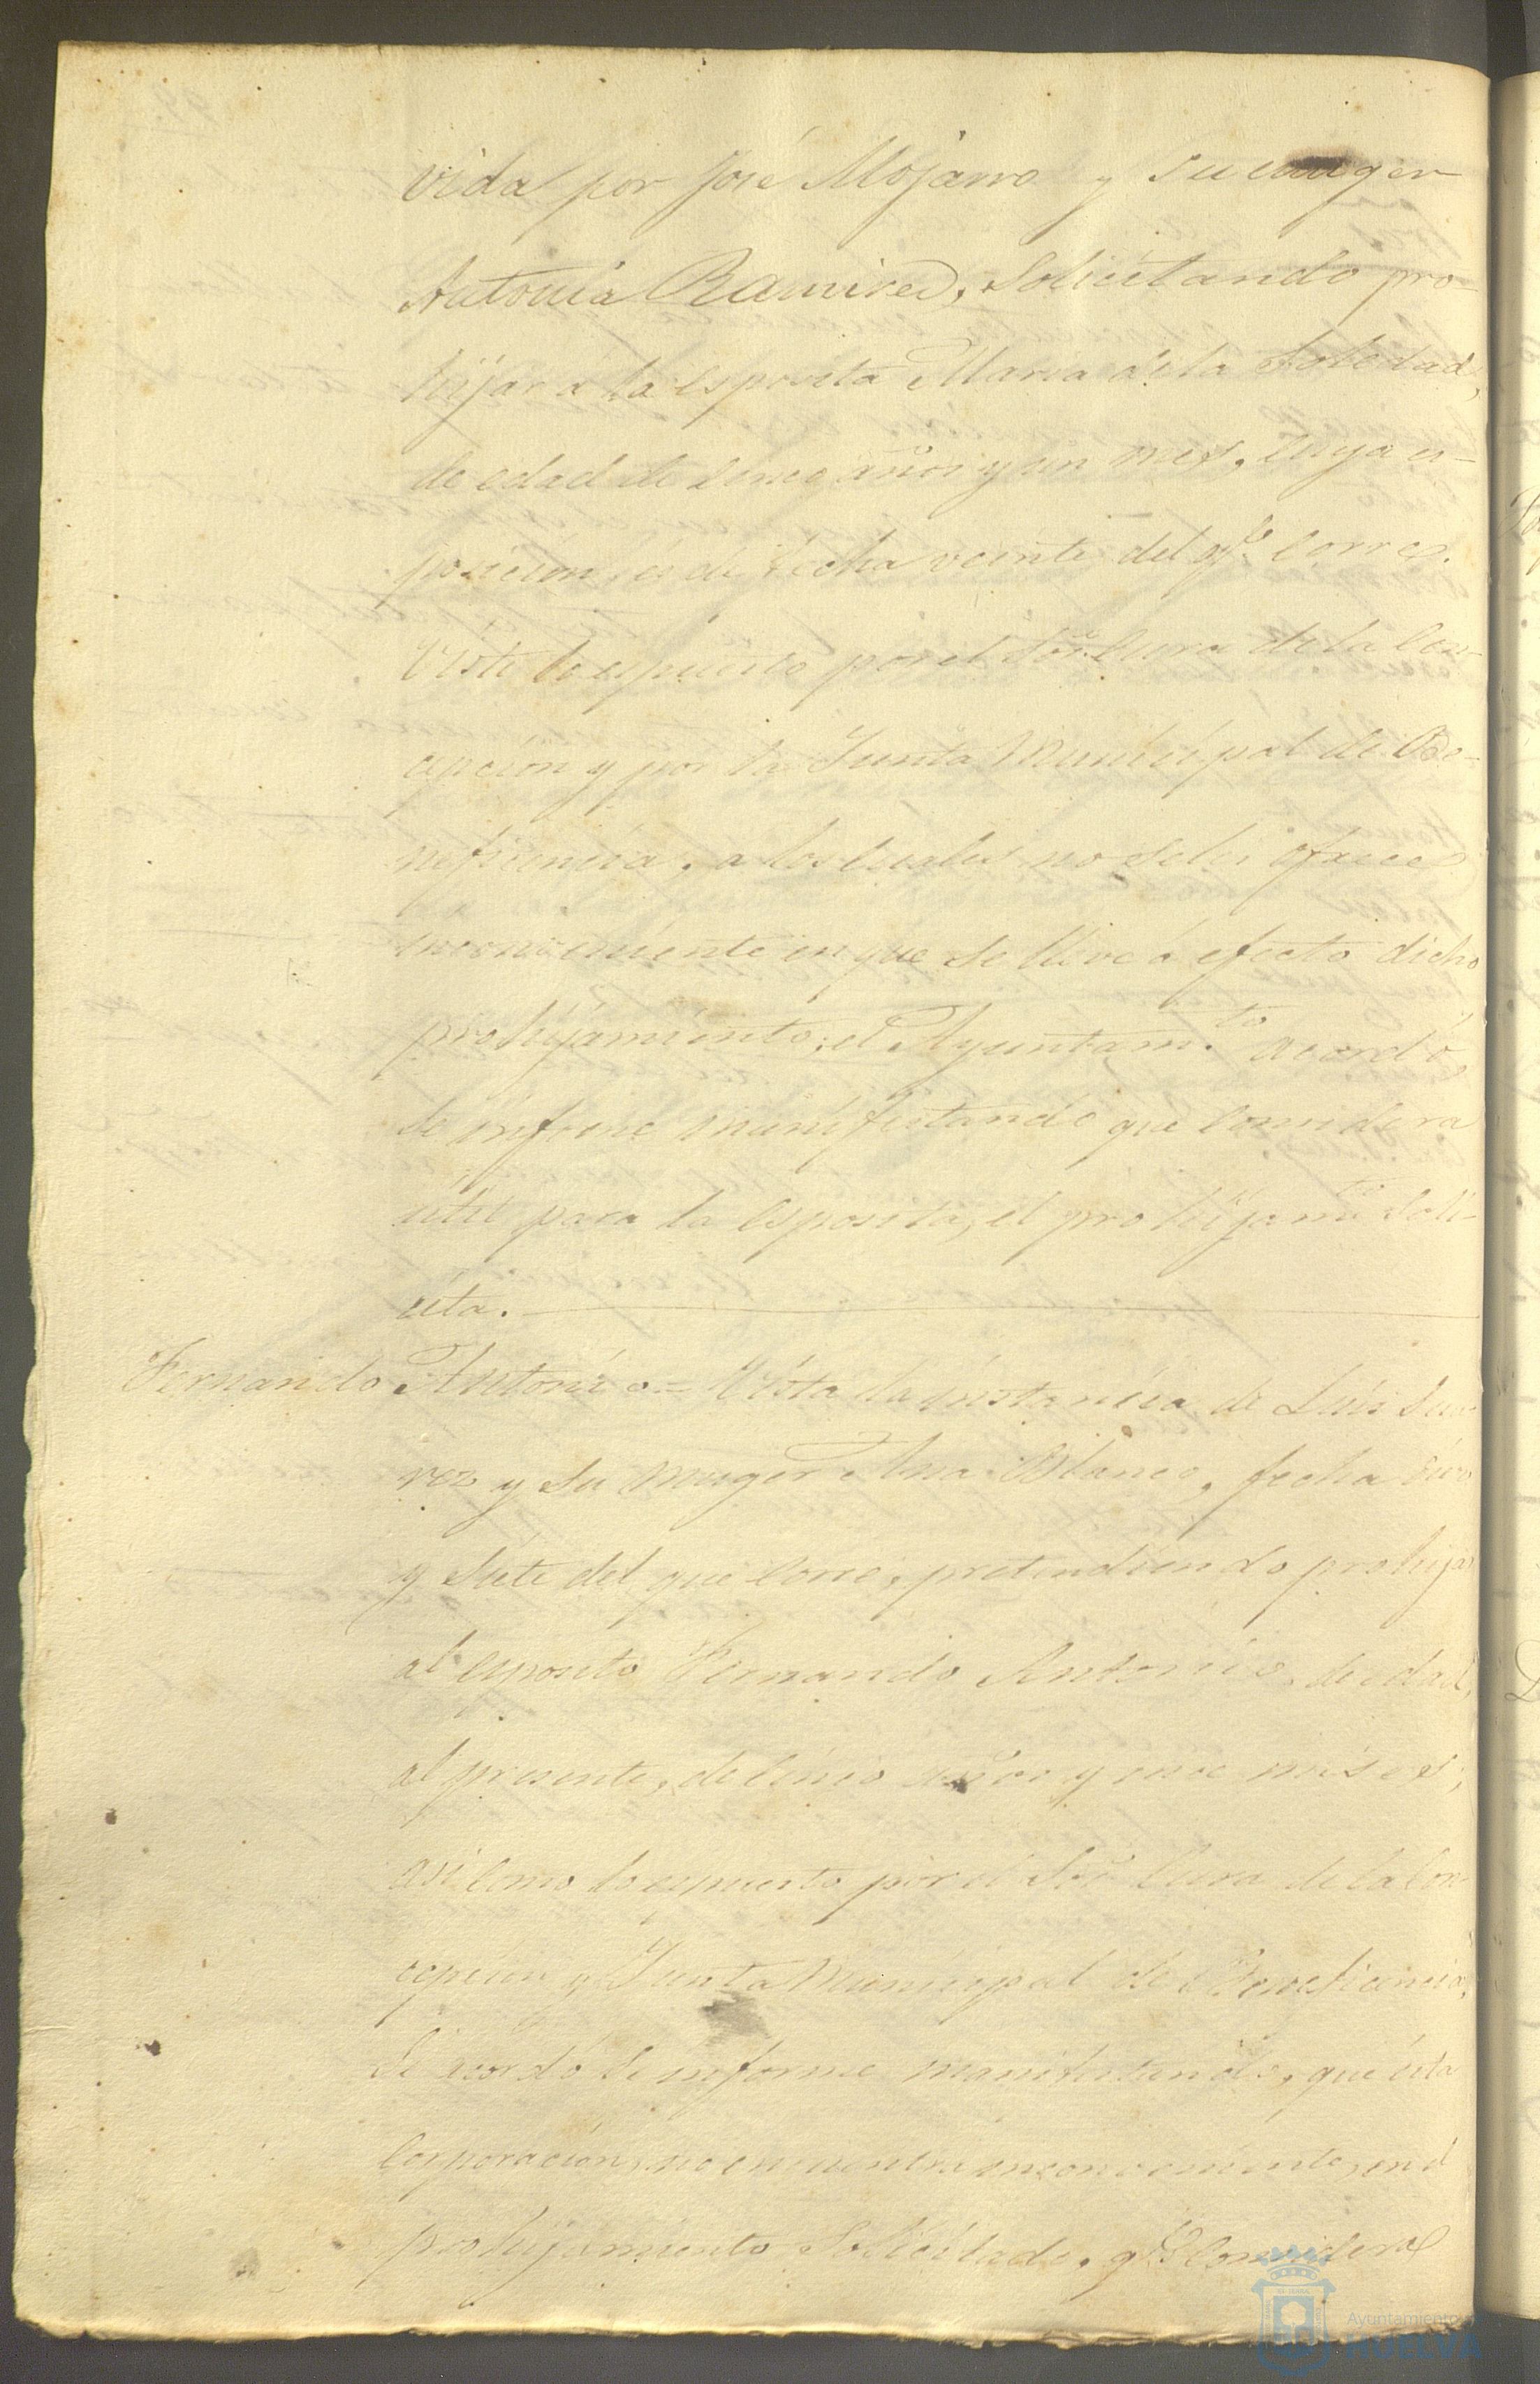 vida por José Mojarro y su muger
Antonia Ramirez, solicitando pro-
hijar a la esposita Maria de la Soledad,
de edad de cinco años y un mes, cuya es-
posicion es de fecha veinte del qe. corre.
Visto lo espuesto por el Sor. Cura de la Con-
cepcion y por la Junta Municipal de Be-
neficencia, a los cuales no se les ofrece
inconveniente en que se lleve á efecto dicho
prohijamiento; el Ayuntam.to acordó
se informe manifestando que considera
util para la esposita, el prohijamto. soli-
cita.
Fernando Antonio = Vista la instancia de Luis
y su muger Ana Blanco, fecha
y siete del que corre, pretendiendo prohijar
al esposito Fernando Antonio, de edad,
al presente, de cinco años y once meses;
asi como lo espuesto por el Sor. Cura de la Con
cepcion y Junta Municipal de Beneficencia,
se acordó se informe manifestando, que esta
Corporacion, no encuentra inconveniente, en el
prohijamiento solicitado, qe. considera
Ayuntamiento
HUELVA